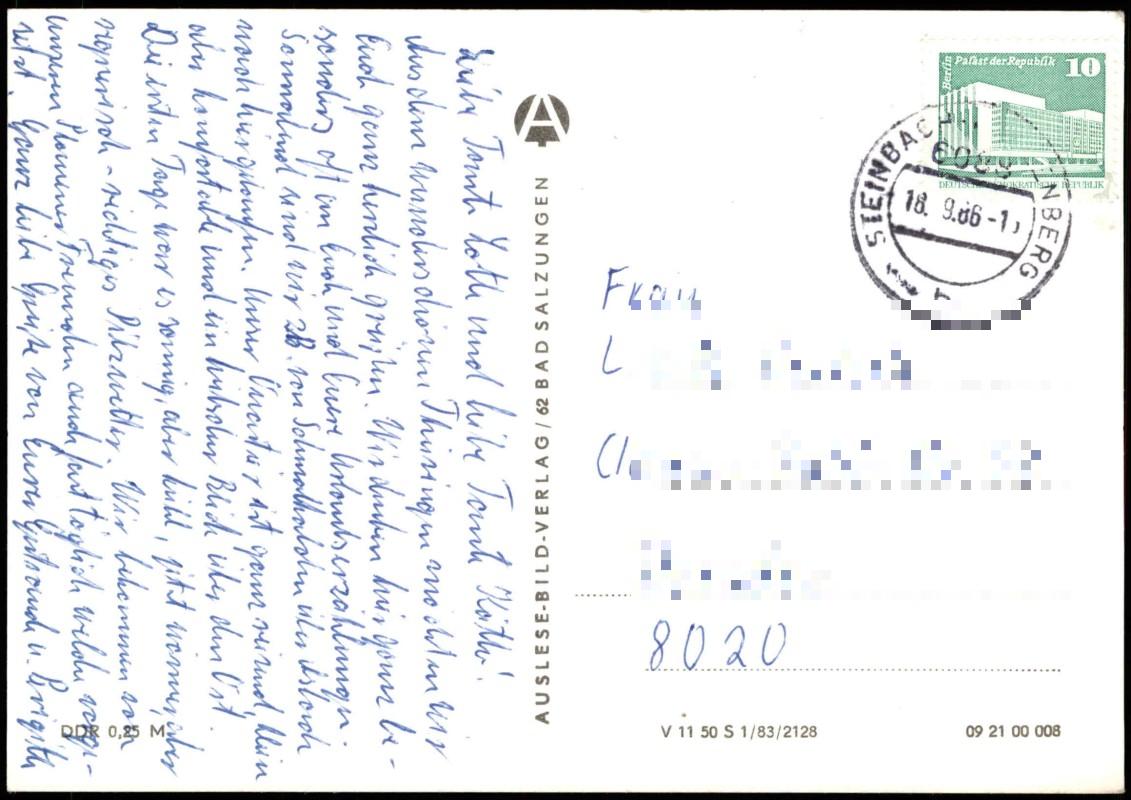 Liebe Tante Lotte und liebe Tante Käthe!
Aus dem wunderschönen Thüringen möchten wir
Euch ganz herzlich grüßen. Wir denken hier ganz be-
sonders oft an Euch und Eure Urlaubserzählungen.
Sonnabend sind wir z.B. von Schmalkalden über Asbach
nach hier gelaufen. Unser Quartier ist ganz reizend, klein
aber komfortabel und ein hübscher Blick über den Ort.
Die ersten Tage war es sonnig, aber kühl, jetzt wärmer, aber
regnerisch - richtiges Pilzwetter. Wir bekommen von
unseren Zimmer Freunden auch fast täglich welche vorge-
setzt. Ganz liebe Grüße von Eurer Gertraude u. Brigitte
DDR 0,25 M
AUSLESE-BILD-VERLAG / 62 BAD SALZUNGEN
A
Berlin
Palast der Republik
10
DEUTSCHE DEMOKRATISCHE REPUBLIK
STEINBACH
6088
18. 9.86-1
Frau
8020
V 11 50 S 1/83/2128
09 21 00 008